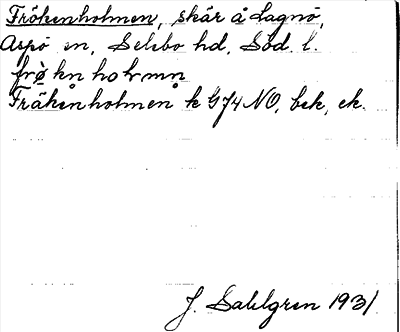 Frökenholmen, skär å Lagnö,
Aspö sn, Selebo hd, Söd. l.
frø̀knhol̥mn̥
Fråkenholmen k G74 NO, bek, ek.
J. Sahlgren 1931